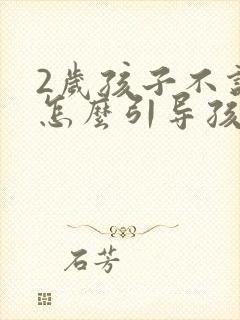 2歲孩子不
怎麼引导孩
石芳